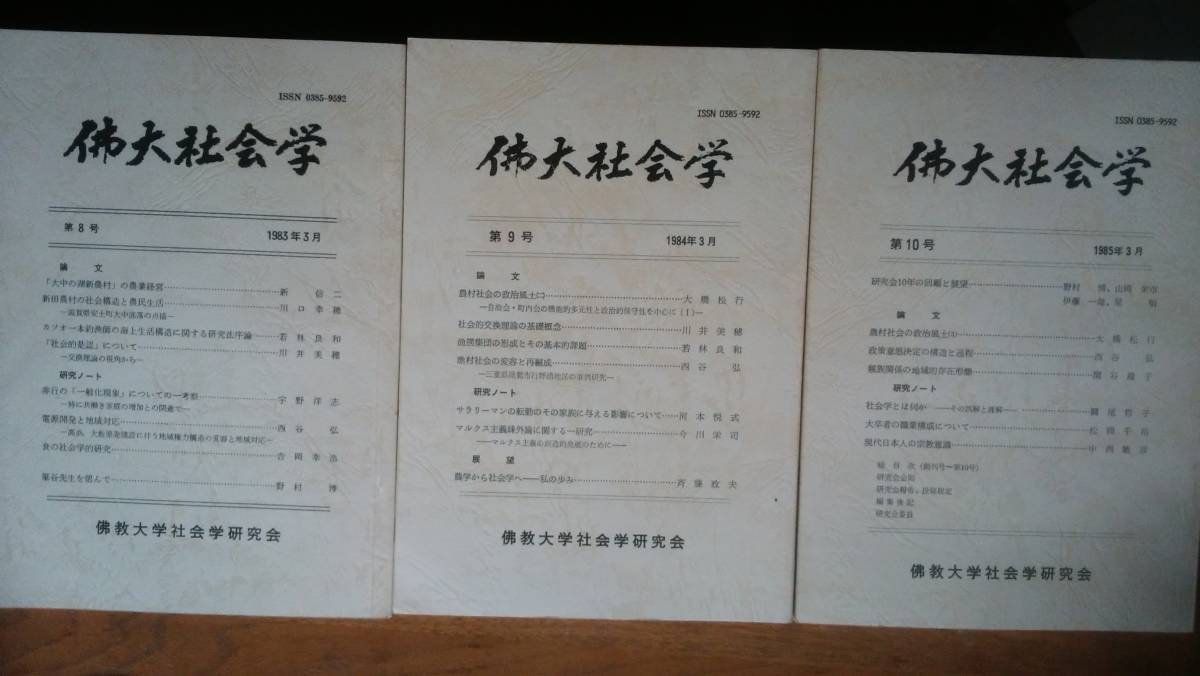 ISSN 0385-9592
佛大社会学
第8号
1983年3月
論文
「大中の湖新農村」の農業経営……新 信二
新田農村の社会構造と農民生活……川口幸穂
―滋賀県安土町大中部落の点描―
カツオ一本釣漁師の海上生活構造に関する研究法序論……若林良和
「社会的是認」について……川井美穂
―交換理論の視角から―
研究ノート
非行の「一般化現象」についての一考察……宇野洋志
―特に共働き家庭の増加との関連で―
電源開発と地域対応……西谷 弘
―高浜、大飯原発建設に伴う地域権力構造の変容と地域対応―
食の社会学的研究……吉岡幸治
先生を偲んで……野村 博
佛教大学社会学研究会
ISSN 0385-9592
佛大社会学
第9号
1984年3月
論文
農村社会の政治風土㈡……大橋松行
―自治会・町内会の機能的多元性と政治的保守性を中心に(Ⅰ)―
社会的交換理論の基礎概念……川井美穂
漁撈集団の形成とその基本的課題……若林良和
漁村社会の変容と再編成……西谷 弘
―三重県尾鷲市行野浦地区の事例研究―
サラリーマンの転勤のその家族に与える影響について……河本悦式
研究ノート
マルクス主義疎外論に関する一研究……今川栄司
――マルクス主義の創造的発展のために――
展望
農学から社会学へ――私の歩み……斉藤政夫
佛教大学社会学研究会
ISSN 0385-9592
佛大社会学
第10号
1985年3月
研究会10年の回顧と展望……野村 博、山岡栄市
伊藤一雄、星
論文
農村社会の政治風土㈢……大橋松行
政策意思決定の構造と過程……西谷 弘
親族関係の地域的存在形態……
研究ノート
社会学とは何か――その誤解と理解――……
大卒者の職業構成について……松岡千
現代日本人の宗教意識……中西
総目次(創刊号~第10号)
研究会会則
研究会報告、投稿規定
編集後記
研究会委員
佛教大学社会学研究会